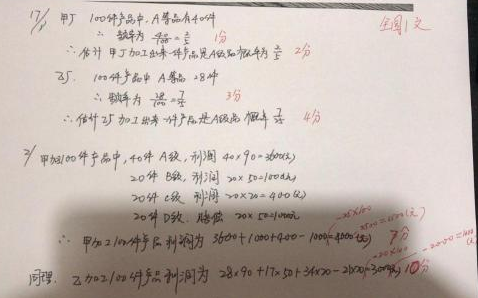 17/ 甲厂 100件产品中,A等品有40件 全国1文
∴ 频率为 40/100 = 2/5 1分
∴ 估计甲厂加工出来一件产品是A级品概率为 2/5 2分
乙厂. 100件产品中 A等品 28件
∴ 频率为 28/100 = 7/25 3分
∴ 估计乙厂加工出来一件产品是A级品概率 4分
2/ 甲加工100件产品中,40件 A级,利润 40×90=3600(元)
20件 B级,利润 20×50=1000元
20件 C级 利润 20×20=400(元)
20件 D级. 赔偿 20×50=1000元
∴ 甲加工100件产品利润为 3600+1000+400-1000 7分
同理. 乙加工100件产品利润为 28×90+17×50+34×20 10分